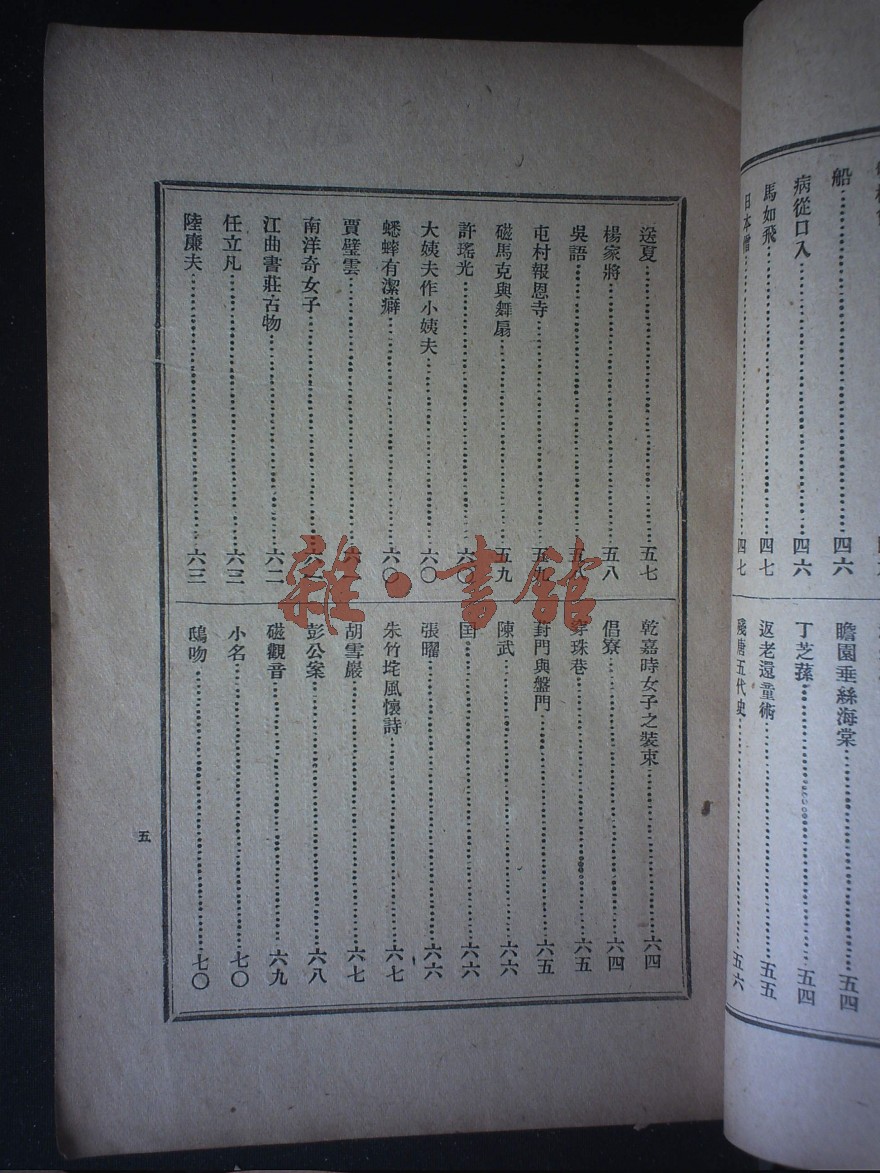 船⋯⋯四六
病從口入⋯⋯四六
馬如飛⋯⋯四七
日本⋯⋯四七
瞻園垂絲海棠⋯⋯五四
丁芝蓀⋯⋯五四
返老還童術⋯⋯五五
殘唐五代史⋯⋯五六
送夏⋯⋯五七
楊家將⋯⋯五八
吳語⋯⋯五八
屯村報恩寺⋯⋯五九
磁馬克與舞扇⋯⋯五九
許瑤光⋯⋯六〇
大姨夫作小姨夫⋯⋯六〇
蟋蟀有潔癖⋯⋯六〇
賈璧雲⋯⋯六
南洋奇女子⋯⋯六
江曲書莊古物⋯⋯六二
任立凡⋯⋯六三
陸廉夫⋯⋯六三
乾嘉時女子之裝束⋯⋯六四
倡寮⋯⋯六四
穿珠巷⋯⋯六五
葑門與盤門⋯⋯六五
陳武⋯⋯六六
囯⋯⋯六六
張曜⋯⋯六六
朱竹垞風懷詩⋯⋯六七
胡雪巖⋯⋯六七
彭公案⋯⋯六八
磁觀音⋯⋯六九
小名⋯⋯七〇
鴟吻⋯⋯七〇
五
雜·書館